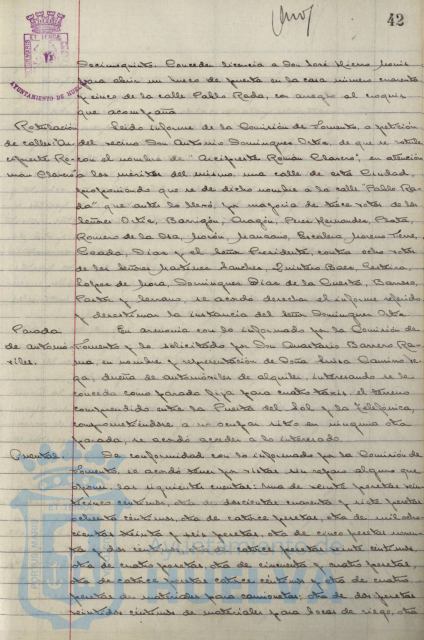 42
AYUNTAMIENTO DE HUELVA
Decimoquinto. Conceder licencia a Don José Hierro
para abrir un hueco de puerta en la casa número cuarenta
y cinco de la calle Pablo Rada, con arreglo al croquis
que acompaña
Rotulación Leido informe de la Comisión de Fomento, a petición
de calle: "Ar del vecino Don Antonio Dominguez Ortiz, de que se rotule
cipreste Ro con el nombre de "Arcipreste Román Clavero", en atención
mán Clavero" a los méritos del mismo, una calle de esta Ciudad,
proponiendo que se de dicho nombre a la calle "Pablo Ra
da" que antes lo llevó, por mayoria de trece votos de los
Señores Ortiz, Barrigón, Aragón, Perez Hernandez,
Romero de la Osa, Morón, Manzano, Escalera, Moreno
Díaz y el Señor Presidente, contra ocho votos
de los Señores Martinez Sanchez, Quintero Baez,
Lopez de Mora, Dominguez, Diaz de la Cuesta, Barrero,
y Serrano, se acordó desechar el informe referido
y desestimar la instancia del Señor Dominguez Ortiz
Parada En armonia con lo informado por la Comisión de
de automó Fomento y lo solicitado por Don Barrero Ra
viles. en nombre y representación de Doña Luisa Camino Ve
ga, dueña de automóviles de alquiler, interesando se le
conceda como parada fija para cuatro taxis, el terreno
comprendido entre la Puerta del Sol y la Telefónica,
comprometiendose a no ocupar sitio en ninguna otra
parada, se acordó acceder a lo interesado
Cuentas. De conformidad con lo informado por la Comisión de
Fomento, se acordó tener por vistas sin reparo alguno que
oponer, las siguientes cuentas: Una de veinte pesetas vein
ticinco centimos, otra de doscientas cuarenta y siete pesetas
ochenta centimos, otra de catorce pesetas, otra de mil ocho
cientas treinta y seis pesetas, otra de cinco pesetas noven
ta y dos centimos, catorce pesetas veinte centimos,
otra de cuatro pesetas, otra de cincuenta y cuatro pesetas,
otra de catorce pesetas catorce centimos y otra de cuatro
pesetas de materiales para camionetas; otra de dos pesetas
veintidos centimos de materiales para bocas de riego, otra